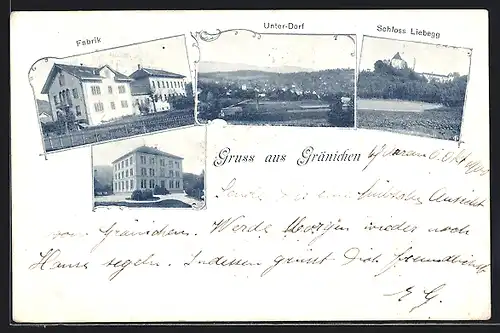 Fabrik
Unter-Dorf
Schloss Liebegg
Gruss aus Gränichen
Aarau 6. Okt.
Sende Dir eine Ansicht
von Gränichen. Werde Morgen wieder nach
Hause segeln. Indessen grüsst Dich freundlichst
E. G.